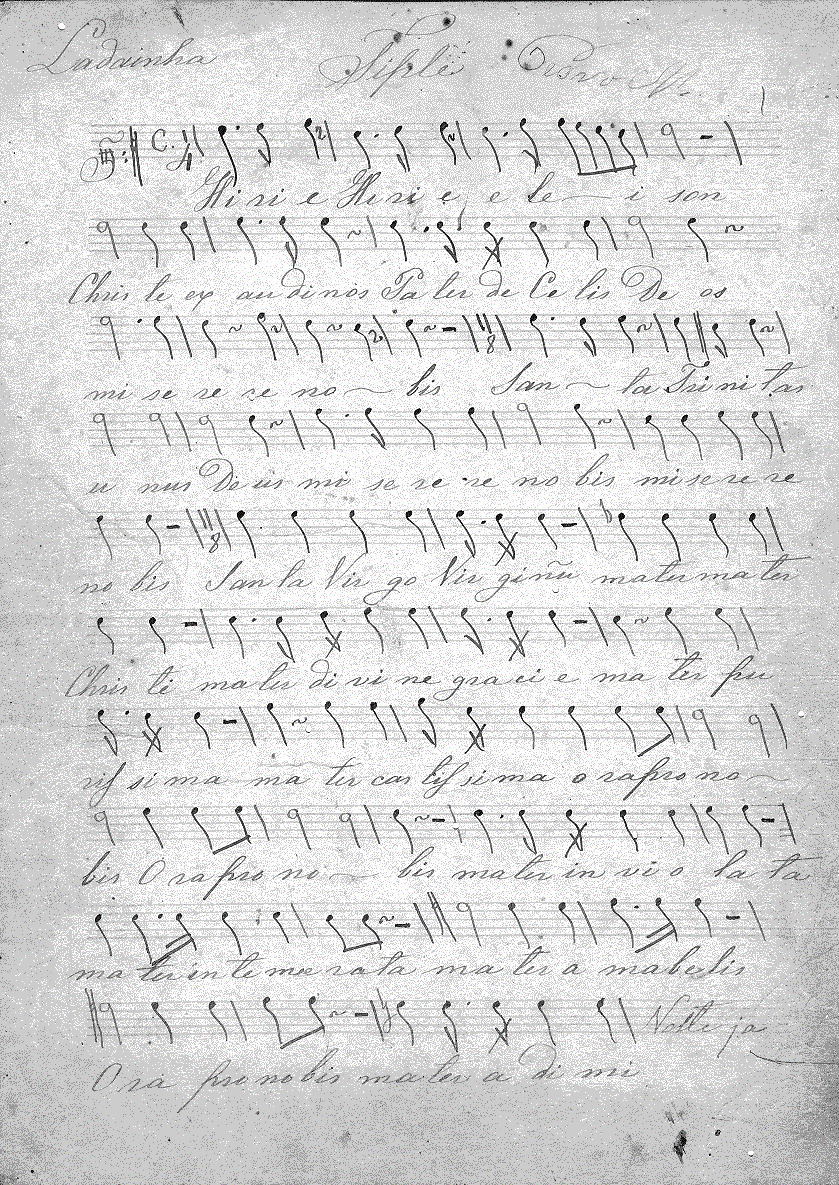 Ladainha Tiple
Kiri e Kiri e e le i son
Chris te ex au di nos Pa ter de Ce lis De os
mi se re re no bis San ta Tri ni tas
u nus De us mi se re re no bis mi se re re
no bis San ta Vir go Vir ginũ mater ma ter
Chris ti ma ter di vi ne gra ci e ma ter pu
ris si ma ma ter cas tis si ma o ra pro no
bis O ra pro no bis mater in vi o la ta
ma ter in te me ra ta ma ter a mabelis
O ra pro no bis ma ter a di mi
Volte ja